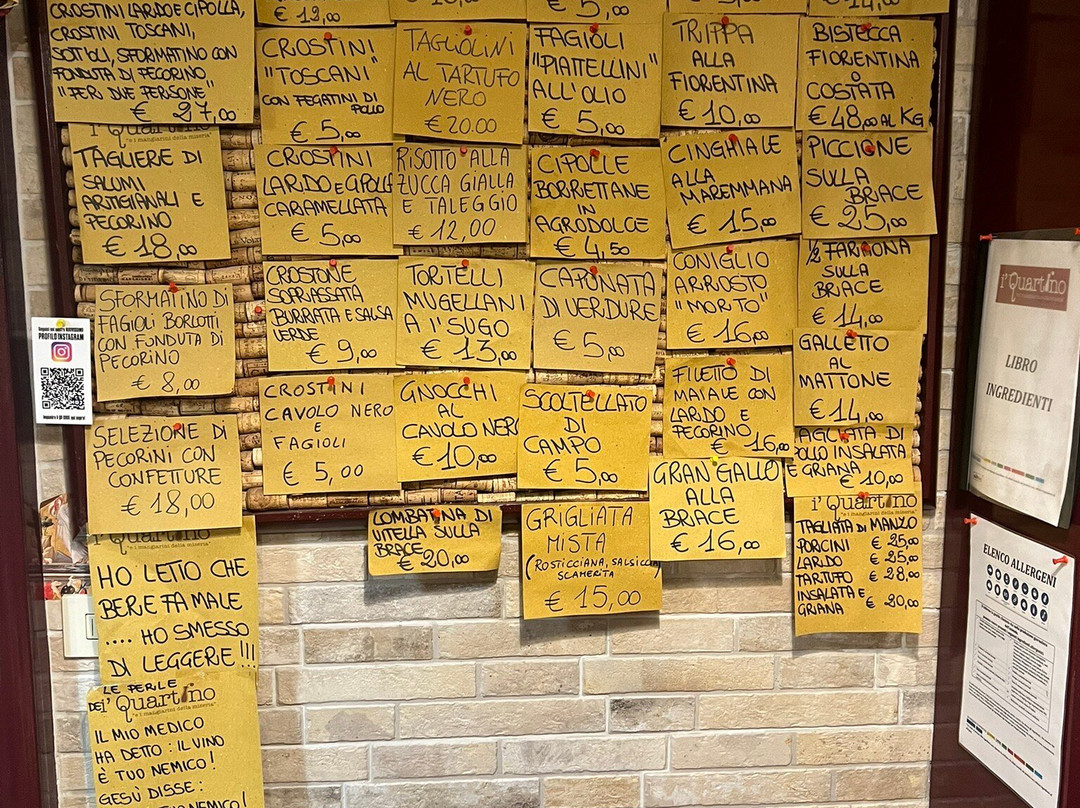 CROSTINI LARDO E CIPOLLA,
CROSTINI TOSCANI,
SOTT'OLI, SFORMATINO CON
FONDUTA DI PECORINO,
"PER DUE PERSONE"
€ 27,00
i'Quartino
"e i mangiarini della miseria"
TAGLIERE DI
SALUMI
ARTIGIANALI E
PECORINO
€ 18,00
SFORMATINO DI
FAGIOLI BORLOTTI
CON FONDUTA DI
PECORINO
€ 8,00
SELEZIONE DI
PECORINI CON
CONFETTURE
€ 18,00
i'Quartino
"e i mangiarini della miseria"
HO LETTO CHE
BERE FA MALE
.... HO SMESSO
DI LEGGERE!!!
LE PERLE
DE i'Quartino
"e i mangiarini della miseria"
IL MIO MEDICO
HA DETTO: IL VINO
È TUO NEMICO!
GESÙ DISSE:
NEMICO!
€ 12,00
CROSTINI
"TOSCANI"
CON FEGATINI DI
POLLO
€ 5,00
CROSTINI
LARDO E CIPOLLE
CARAMELLATA
€ 5,00
CROSTONE
SOPRASSATA
BURRATA E SALSA
VERDE
€ 9,00
CROSTINI
CAVOLO NERO
E
FAGIOLI
€ 5,00
TAGLIOLINI
AL TARTUFO
NERO
€ 20.00
RISOTTO ALLA
ZUCCA GIALLA
E TALEGGIO
€ 12,00
TORTELLI
MUGELLANI
A I'SUGO
€ 13,00
GNOCCHI
AL
CAVOLO NERO
€ 10,00
LOMBATINA DI
VITELLA SULLA
BRACE
€ 20,00
€ 5,00
FAGIOLI
"PIATTELLINI"
ALL'OLIO
€ 5,00
CIPOLLE
BORRETTANE
IN
AGRODOLCE
€ 4,50
CAPONATA
DI VERDURE
€ 5,00
SCOLTELLATO
DI
CAMPO
€ 5,00
GRIGLIATA
MISTA
(ROSTICCIANA, SALSICCIA,
SCAMERITA
€ 15,00
TRIPPA
ALLA
FIORENTINA
€ 10,00
CINGHIALE
ALLA
MAREMMANA
€ 15,00
CONIGLIO
ARROSTO
"MORTO"
€ 16,00
FILETTO DI
MAIALE CON
LARDO E
PECORINO
€ 16,00
GRAN GALLO
ALLA
BRACE
€ 16,00
€ 14,00
BISTECCA
FIORENTINA
O
COSTATA
€ 48,00 AL KG
PICCIONE
SULLA
BRACE
€ 25,00
½ FARAONA
SULLA
BRACE
€ 14,00
GALLETTO
AL
MATTONE
€ 14,00
TAGLIATA DI
POLLO INSALATA
E GRANA
€ 10,00
i'Quartino
"e i mangiarini della miseria"
TAGLIATA DI MANZO
PORCINI € 25,00
LARDO € 25,00
TARTUFO € 28,00
INSALATA E
GRANA € 20,00
PROFILO INSTAGRAM
i'Quartino
LIBRO
INGREDIENTI
ELENCO ALLERGENI